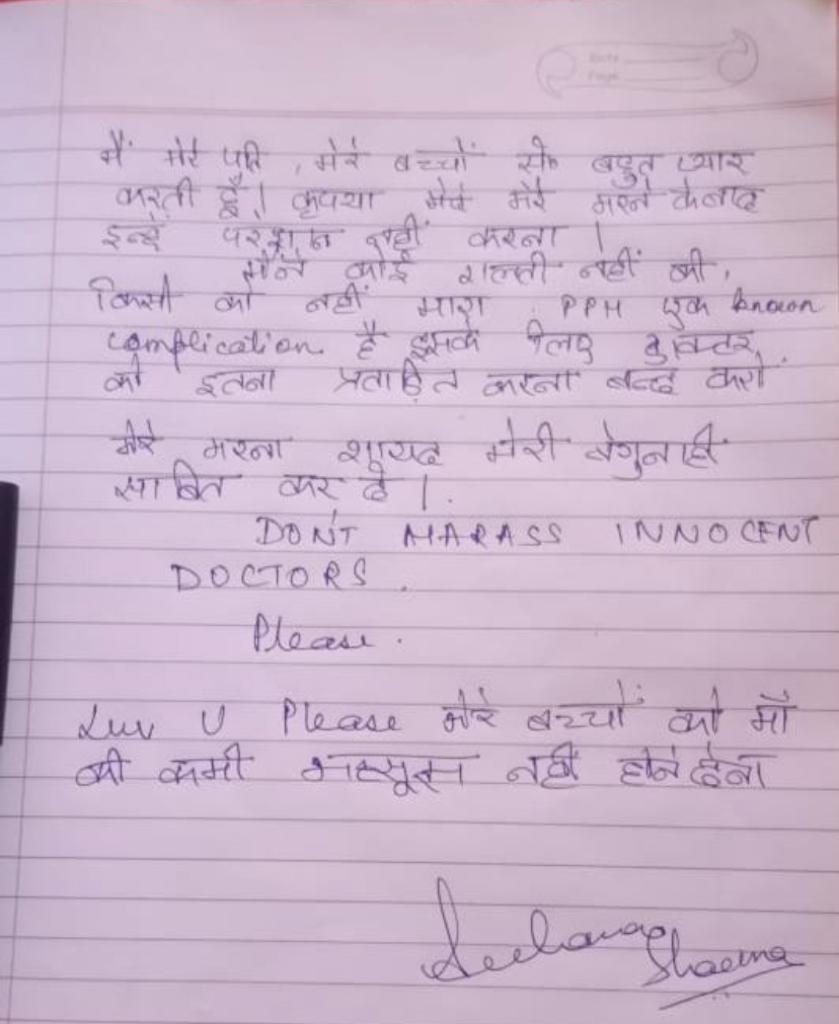 Date
Page
मैं मेरे पति, मेरे बच्चों से बहुत प्यार
करती हूँ। कृपया मेरे मरने के बाद
इन्हें परेशान नहीं करना।
मैंने कोई गल्ती नहीं की,
किसी को नहीं मारा. PPH एक known
complication है इसके लिए डॉक्टर
को इतना प्रताड़ित करना बन्द करो.
मेरे मरना शायद मेरी बेगुनाही
साबित कर दे।.
DON'T HARASS INNOCENT
DOCTORS.
Please.
Luv U Please मेरे बच्चों को माँ
की कमी महसूस नहीं होने देना
Sharma